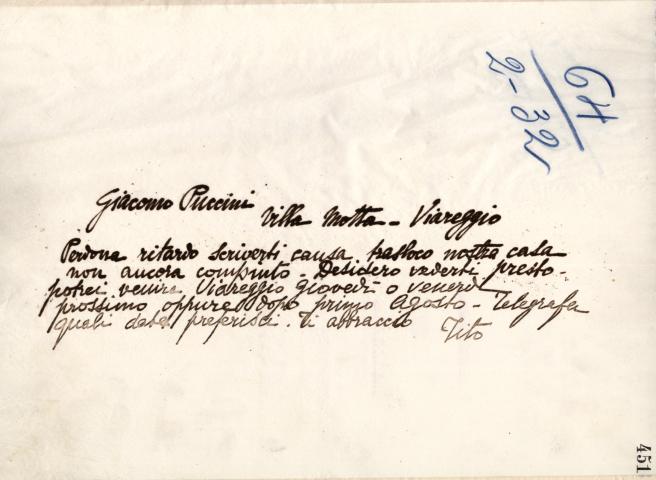 64
2-32
Giacomo Puccini
Villa Motta - Viareggio
Perdona ritardo scriverti causa trasloco nostra casa
non ancora compiuto - Desidero vederti presto -
potrei venire Viareggio giovedì o venerdì
prossimo oppure dopo primo Agosto - Telegrafa
quali date preferisci. Ti abbraccio
Tito
451